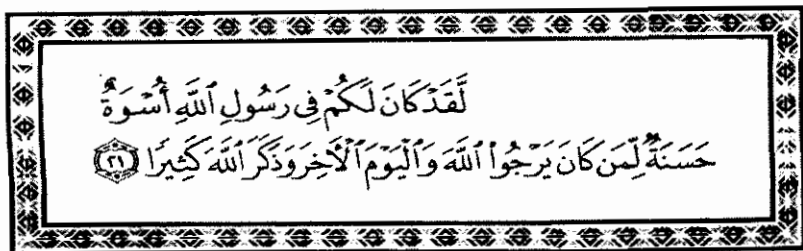 لَّقَدْ كَانَ لَكُمْ فِي رَسُولِ ٱللَّهِ أُسْوَةٌ
حَسَنَةٌ لِّمَن كَانَ يَرْجُوا۟ ٱللَّهَ وَٱلْيَوْمَ ٱلْءَاخِرَ وَذَكَرَ ٱللَّهَ كَثِيرًا ٢١